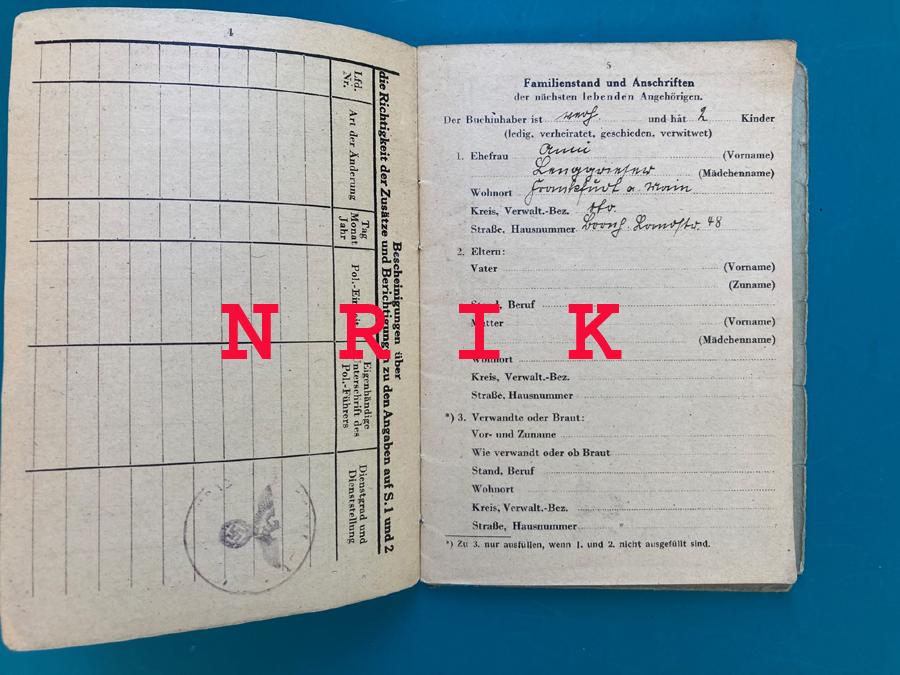 4
Bescheinigungen über
die Richtigkeit der Zusätze und Berichtigungen zu den Angaben auf S. 1 und 2
Lfd. Nr.
Art der Änderung
Tag Monat Jahr
Pol.-Einheit
Eigenhändige Unterschrift des Pol.-Führers
Dienstgrad und Dienststellung
N R I K
5
Familienstand und Anschriften
der nächsten lebenden Angehörigen.
Der Buchinhaber ist verh. und hat 2 Kinder
(ledig, verheiratet, geschieden, verwitwet)
1. Ehefrau Anni (Vorname)
Lenggrieser (Mädchenname)
Wohnort Frankfurt a. Main
Kreis, Verwalt.-Bez. dto.
Straße, Hausnummer Bornh. Landstr. 48
2. Eltern:
Vater (Vorname)
(Zuname)
Stand, Beruf
Mutter (Vorname)
(Mädchenname)
Wohnort
Kreis, Verwalt.-Bez.
Straße, Hausnummer
*) 3. Verwandte oder Braut:
Vor- und Zuname
Wie verwandt oder ob Braut
Stand, Beruf
Wohnort
Kreis, Verwalt.-Bez.
Straße, Hausnummer
*) Zu 3. nur ausfüllen, wenn 1. und 2. nicht ausgefüllt sind.